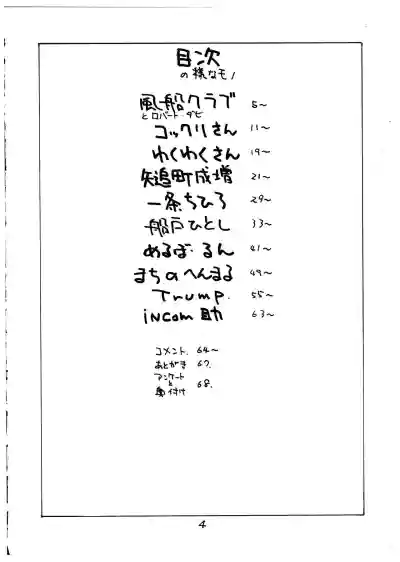 目次
の様なモノ
風船クラブ 5~
とロバート・ダビ
コックリさん 11~
わくわくさん 19~
矢追町成増 21~
一条ちひろ 29~
船戸ひとし 33~
めるぼ・るん 41~
まちのへんまる 49~
Trump. 55~
incom助 63~
コメント. 64~
あとがき 67.
アンケート
と 68.
奥付け
4